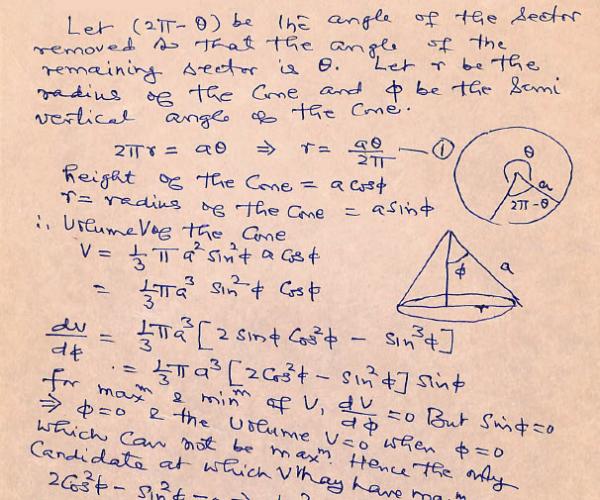 Let (2π - θ) be the angle of the sector
removed so that the angle of the
remaining sector is θ. Let r be the
radius of the Cone and φ be the Semi
vertical angle of the Cone.
2πr = aθ ⇒ r = aθ/2π — ①
height of the Cone = a cosφ
r = radius of the Cone = a sinφ
∴ Volume V of the Cone
V = 1/3 π a² sin²φ a Cosφ
= 1/3 π a³ sin²φ Cosφ
dv/dφ = 1/3 π a³ [2 sinφ Cos²φ - sin³φ]
= 1/3 π a³ [2Cos²φ - sin²φ] sinφ
for max^m & min^m of V, dV/dφ = 0 But sinφ=0
⇒ φ=0 & the volume V=0 when φ=0
which can not be max^m. Hence the only
Candidate at which V may have max^m
2Cos²φ - sin²φ
θ
a
2π-θ
φ
a
r